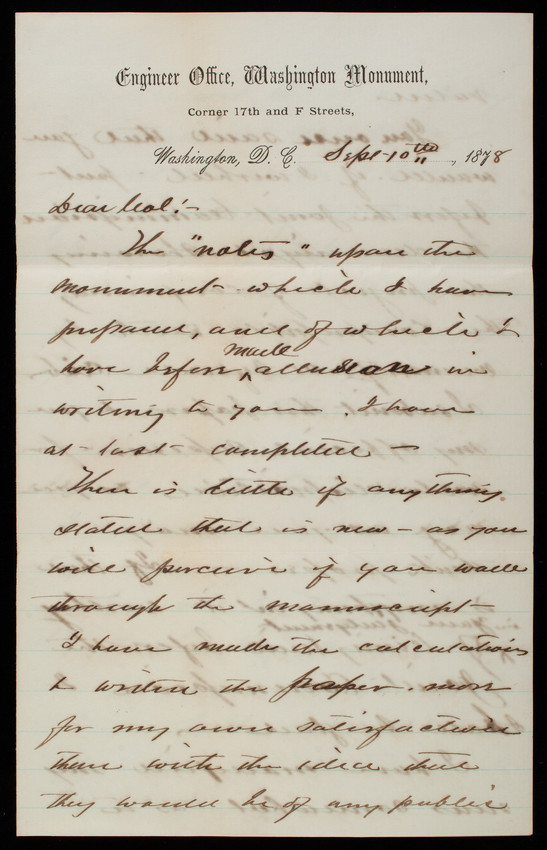 Engineer Office, Washington Monument,
Corner 17th and F Streets,
Washington, D. C. Sept 10th, 1878
Dear Col:-
The "notes" upon the
monument which I have
prepared, and of which I
have before made allusion in
writing to you. I have
at last completed -
There is little if anything
stated that is new - as you
will perceive if you wade
through the manuscript
I have made the calculations
& written the paper more
for my own satisfaction
than with the idea that
they would be of any public